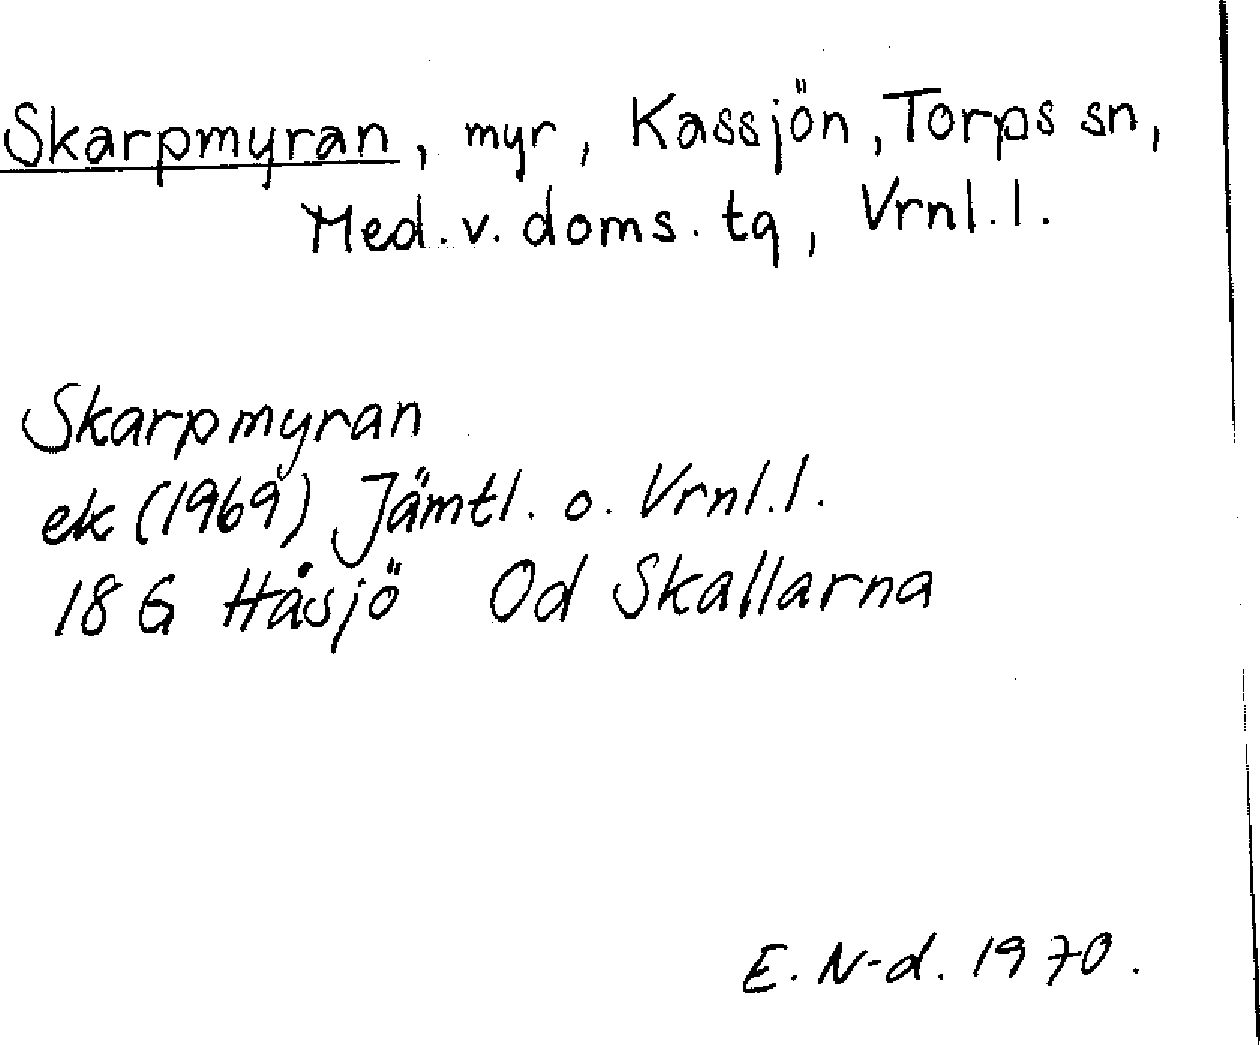 Skarpmyran, myr, Kassjön, Torps sn,
Med. v. doms. tg, Vrnl. l.
Skarpmyran
ek (1969) Jämtl. o. Vrnl. l.
18 G Håsjö Od Skallarna
E. N-d. 1970.